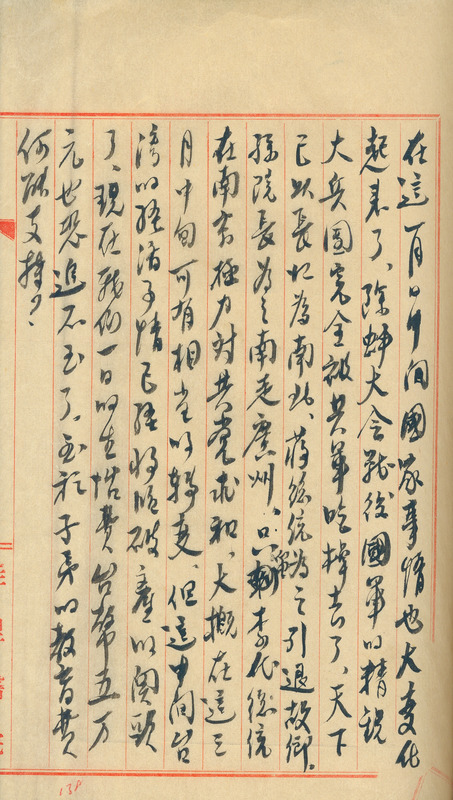 在這一月日中间國家事情也大变化
起来了、除蚌大会戰後國軍的精锐
大兵團完全被共軍吃掉去了、天下
已以長江為南北、蔣總統為之引退故鄉。
孫院長為之南走廣州、只剩李代總統
在南京極力对共党求和、大概在這三
月中旬可有相当的轉变、但這中间台
湾的經済事情已經将临破產的関頭
了、現在我们一日的生活費台幣五万
元也恐追不到了、至於子弟的教育費
何能支持？
138